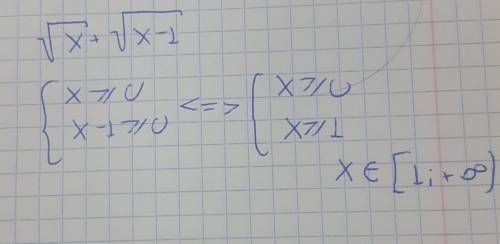 √x + √x-1
{ x ⩾ 0 <=> { x ⩾ 0
x-1 ⩾ 0 x ⩾ 1
x ∈ [1; +∞)